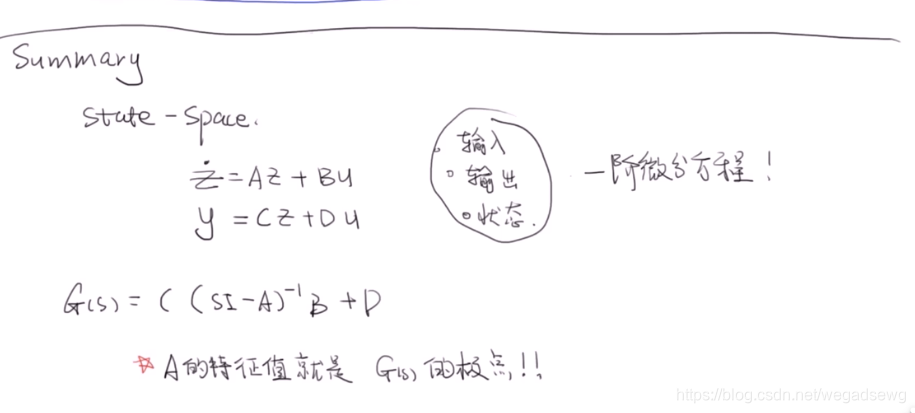 Summary
State-Space.
ż = Az + Bu
y = Cz + Du
输入
输出
状态.
一阶微分方程!
G(s) = C (SI-A)⁻¹ B + D
☆ A的特征值就是 G(s) 的极点!!
https://blog.csdn.net/wegadsewg